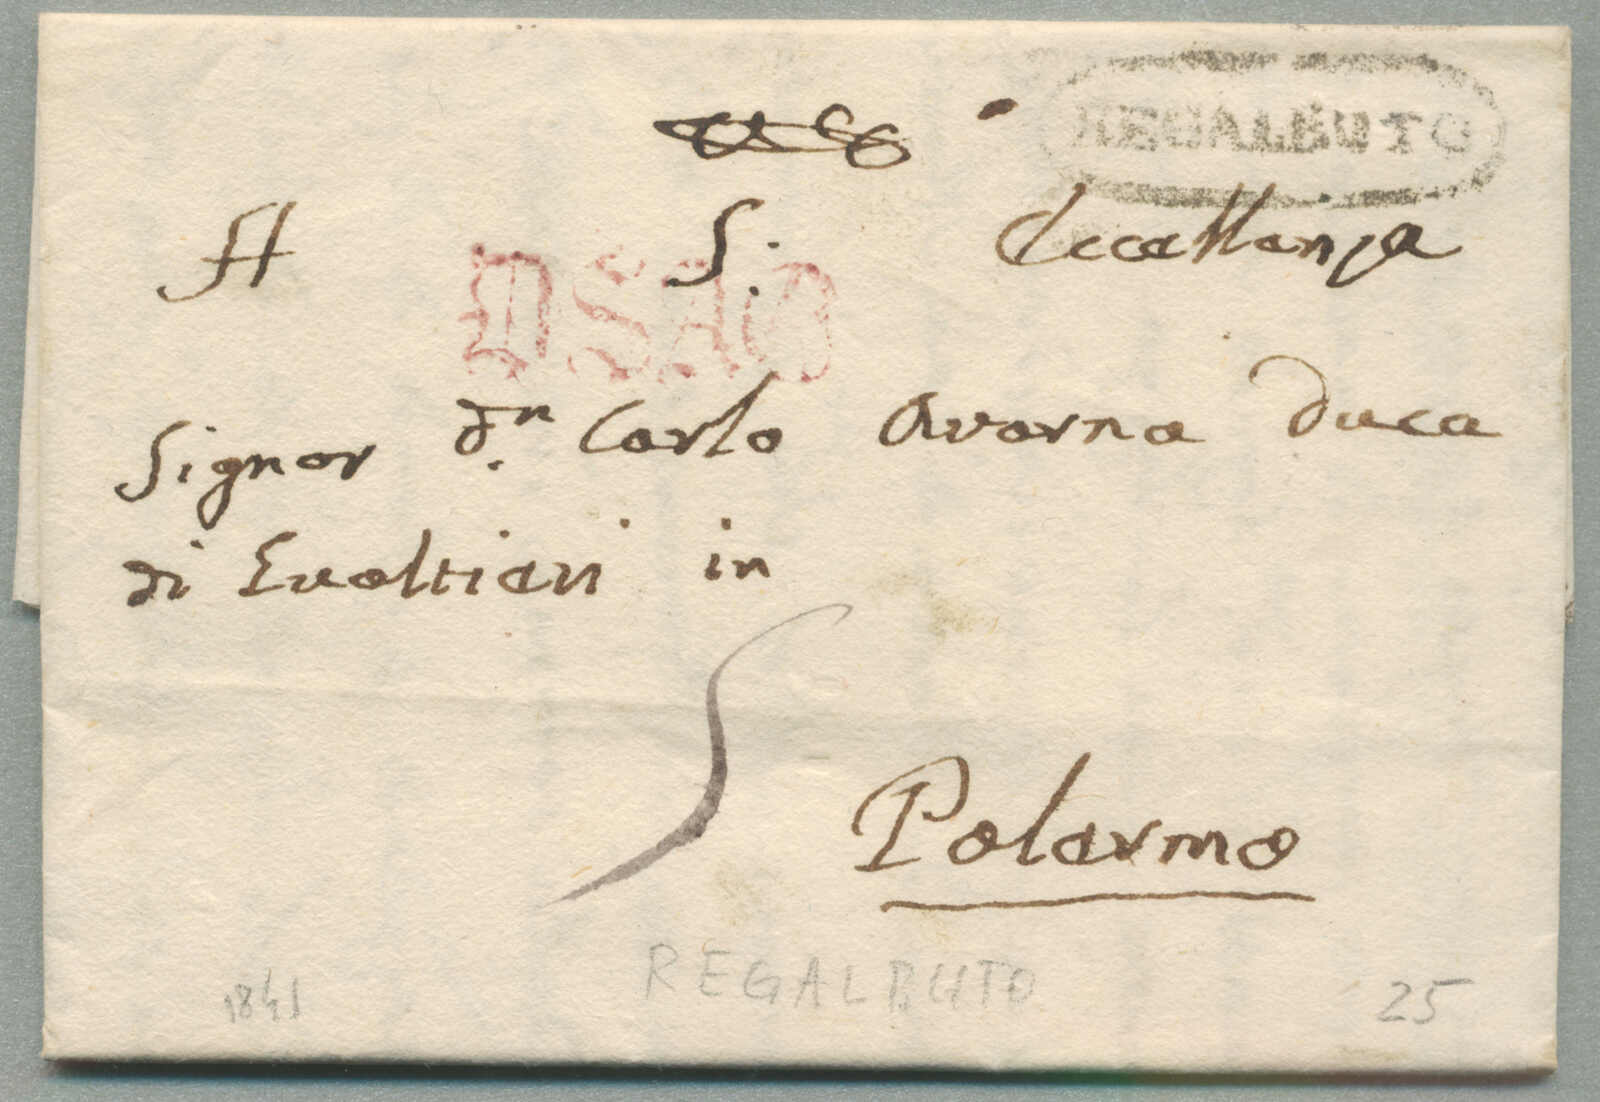 REGALBUTO
A S: Eccellenza
DSAO
Signor Dn. Carlo Avarna Duca
di Gualtieri in
5
Palermo
REGALBUTO
1841 25